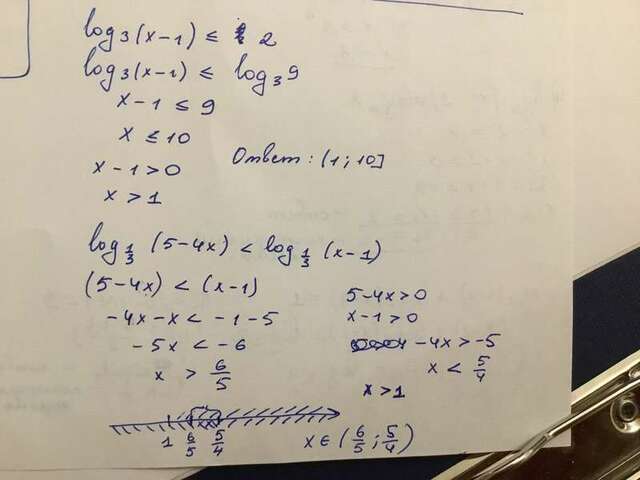 log₃(x-1) ≤ 2
log₃(x-1) ≤ log₃9
x-1 ≤ 9
x ≤ 10
x-1>0
x>1
Ответ: (1; 10]
log₁/₃ (5-4x) < log₁/₃ (x-1)
(5-4x) < (x-1)
-4x-x < -1-5
-5x < -6
x > 6/5
5-4x>0
x-1>0
-4x>-5
x < 5/4
x>1
1 6/5 5/4
x∈(6/5; 5/4)